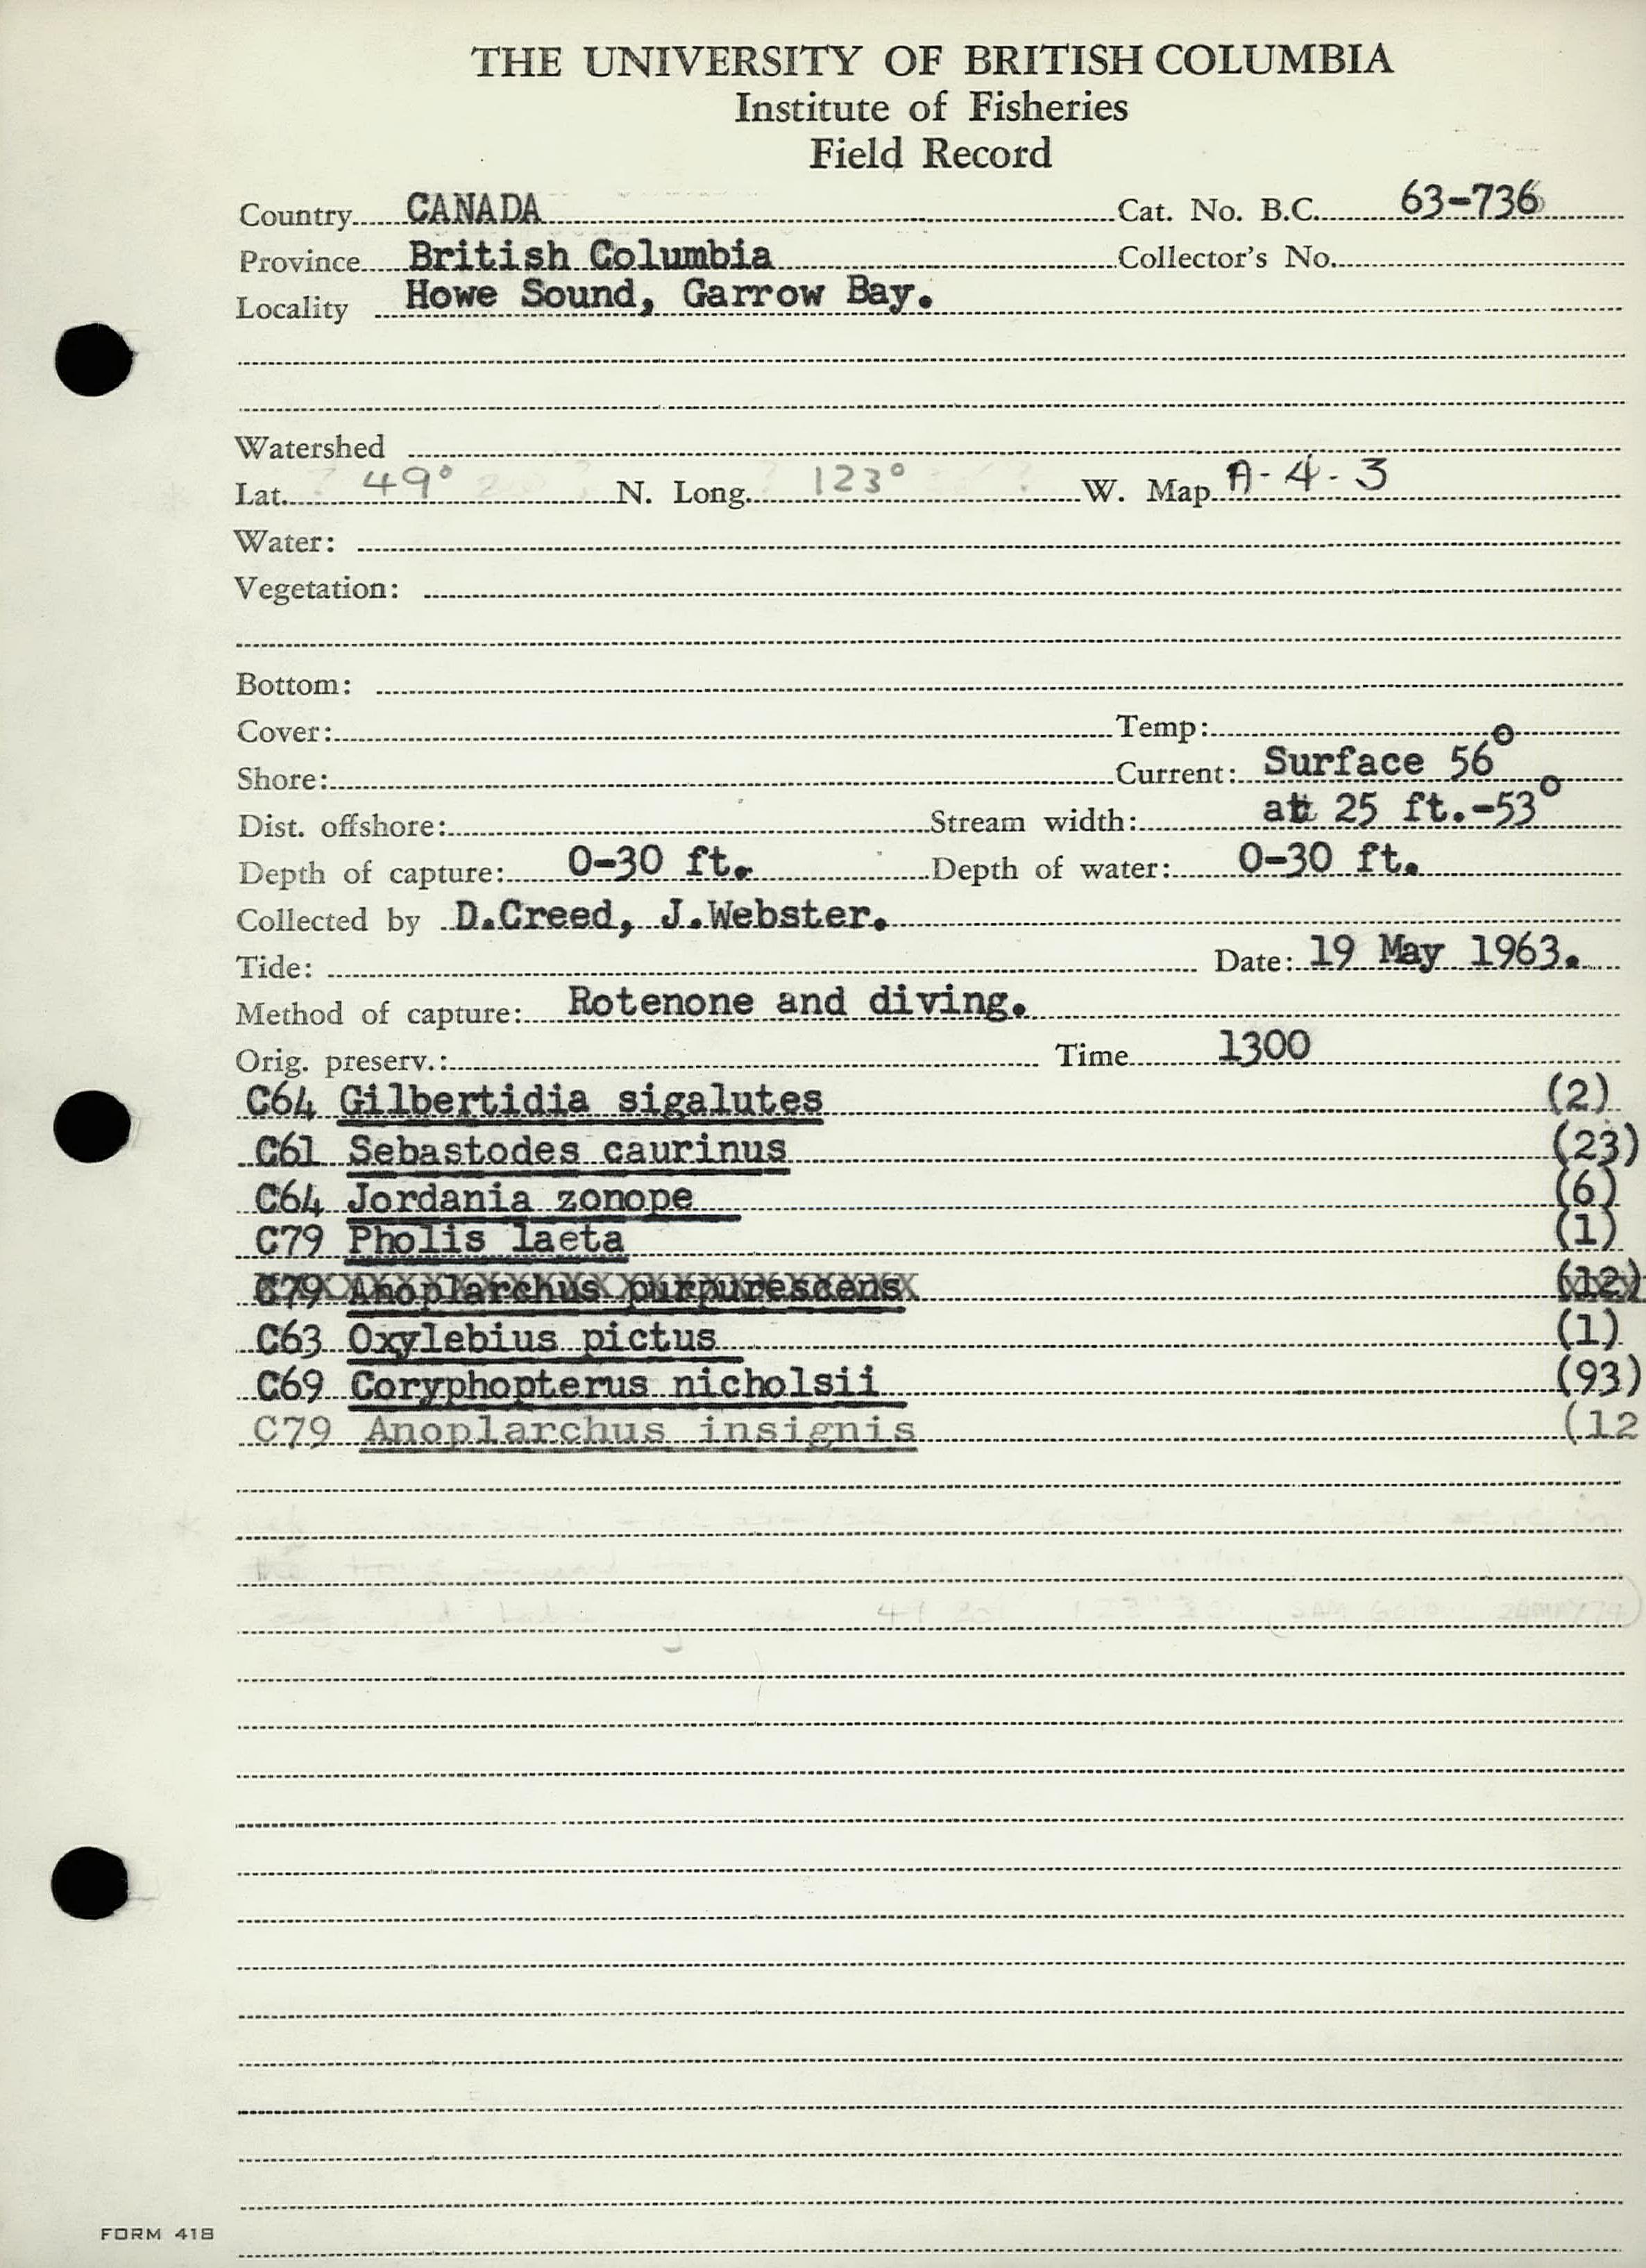 THE UNIVERSITY OF BRITISH COLUMBIA
Institute of Fisheries
Field Record
Country CANADA Cat. No. B.C. 63-736
Province British Columbia Collector's No.
Locality Howe Sound, Garrow Bay.
Watershed
Lat. 49° N. Long. 123° W. Map A-4-3
Water:
Vegetation:
Bottom:
Cover: Temp:
Shore: Current: Surface 56°
Dist. offshore: Stream width: at 25 ft.-53°
Depth of capture: 0-30 ft. Depth of water: 0-30 ft.
Collected by D.Creed, J.Webster.
Tide: Date: 19 May 1963.
Method of capture: Rotenone and diving.
Orig. preserv.: Time 1300
C64 Gilbertidia sigalutes (2)
C61 Sebastodes caurinus (23)
C64 Jordania zonope (6)
C79 Pholis laeta (1)
C79 Anoplarchus purpurescens (12)
C63 Oxylebius pictus (1)
C69 Coryphopterus nicholsii (93)
C79 Anoplarchus insignis (12
FORM 418